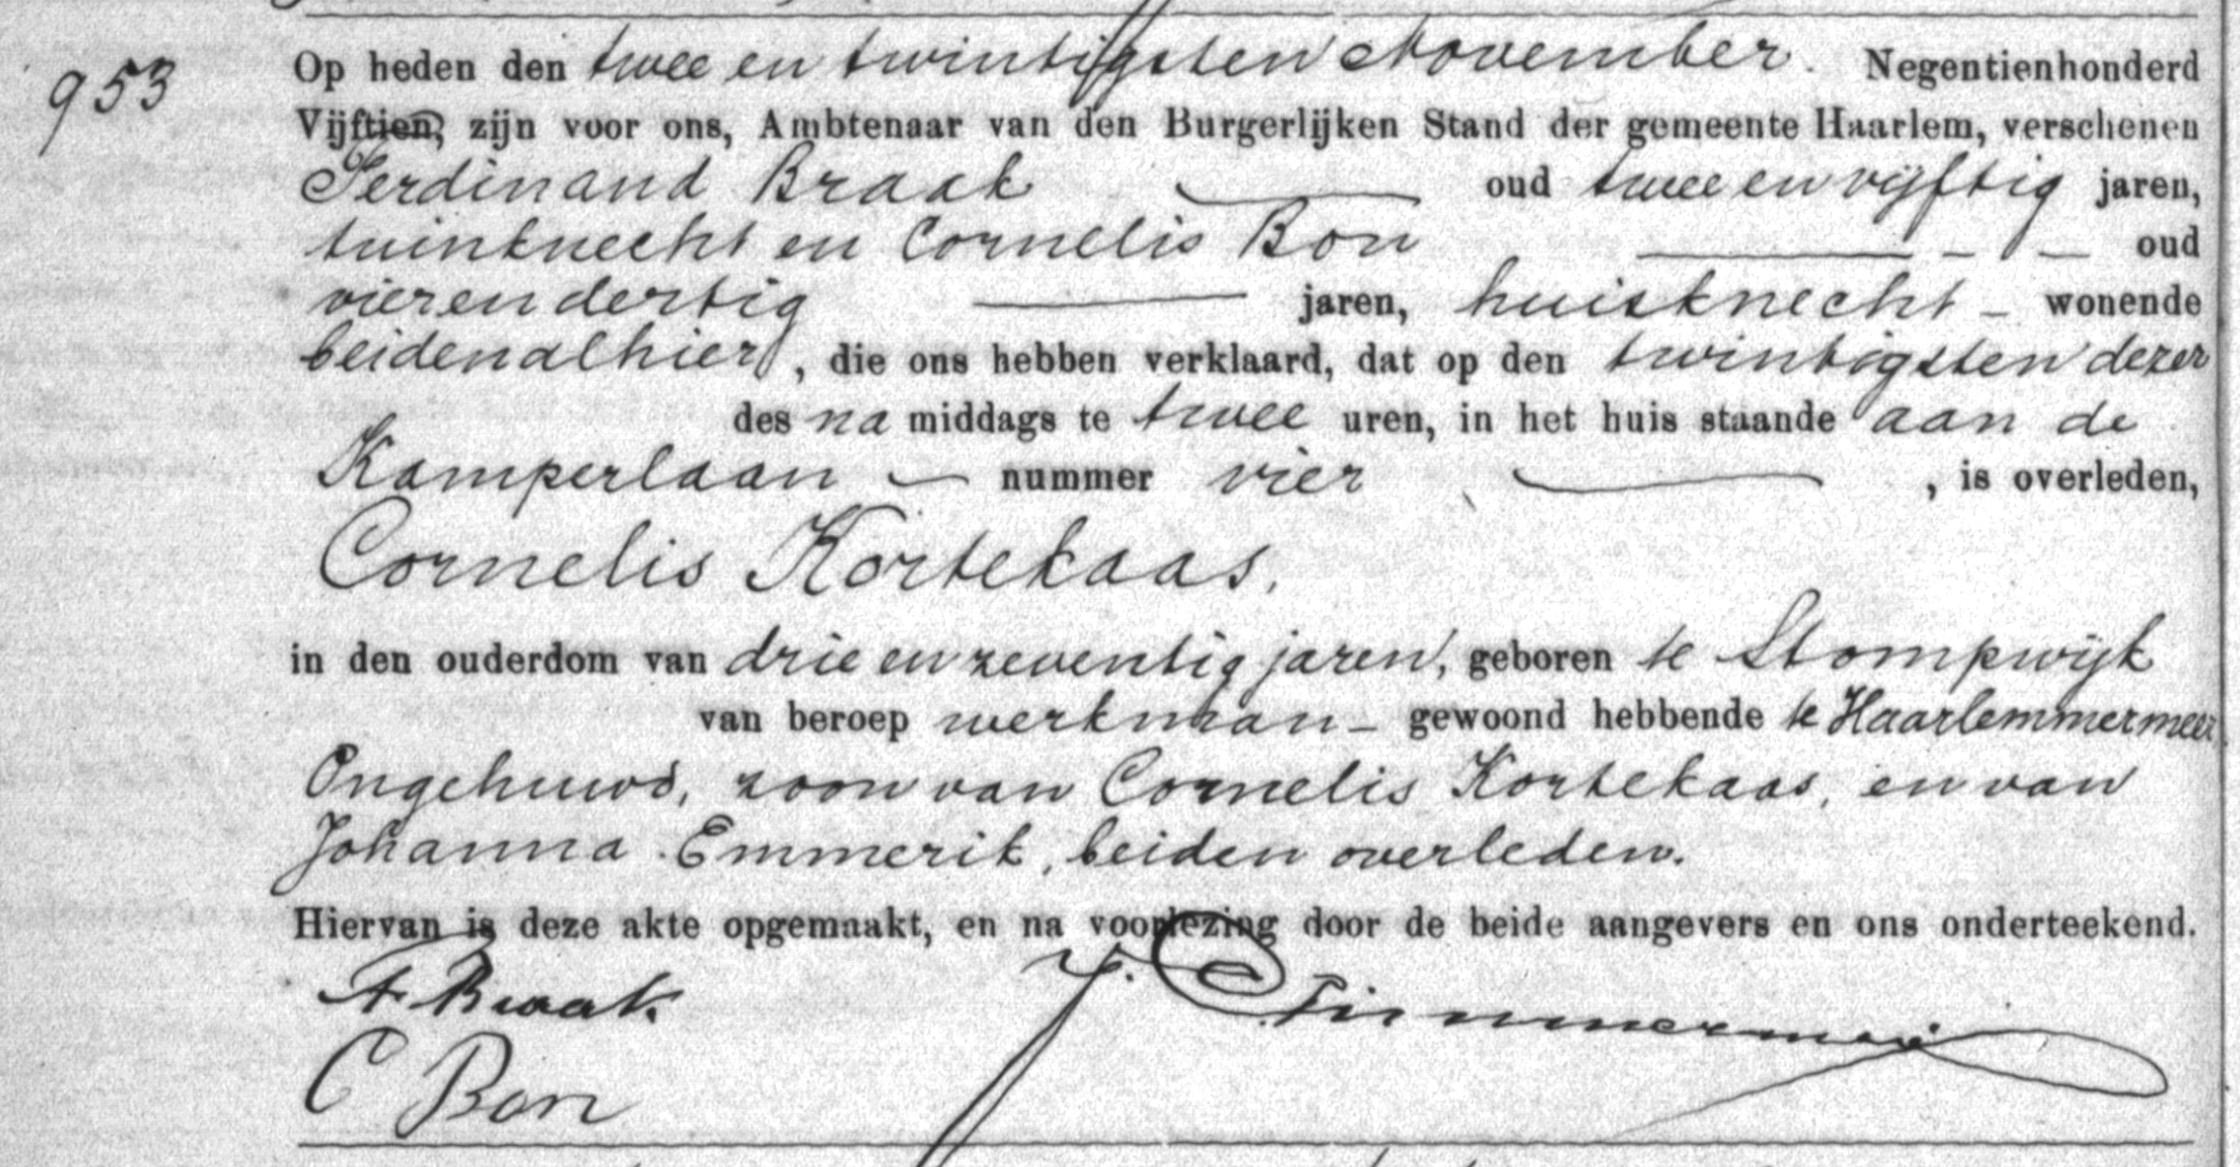 953
Op heden den twee en twintigsten November. Negentienhonderd
Vijftien, zijn voor ons, Ambtenaar van den Burgerlijken Stand der gemeente Haarlem, verschenen
Ferdinand Braak oud twee en vijftig jaren,
tuinknecht en Cornelis Bon oud
vier en dertig jaren, huisknecht wonende
beiden alhier, die ons hebben verklaard, dat op den twintigsten dezer
des na middags te twee uren, in het huis staande aan de
Kamperlaan nummer vier, is overleden,
Cornelis Kortekaas,
in den ouderdom van drie en zeventig jaren, geboren te Stompwijk
van beroep werkman gewoond hebbende te Haarlemmermeer
Ongehuwd, zoon van Cornelis Kortekaas, en van
Johanna Emmerik, beiden overleden.
Hiervan is deze akte opgemaakt, en na voorlezing door de beide aangevers en ons onderteekend.
F. Braak. J. Timmerman
C Bon